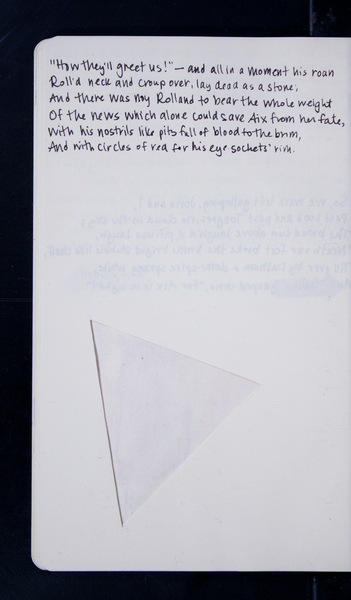 "How they'll greet us!" — and all in a moment his roan
Roll'd neck and croup over, lay dead as a stone;
And there was my Rolland to bear the whole weight
Of the news which alone could save Aix from her fate,
With his nostrils like pits full of blood to the brim,
And with circles of red for his eye sockets' rim.